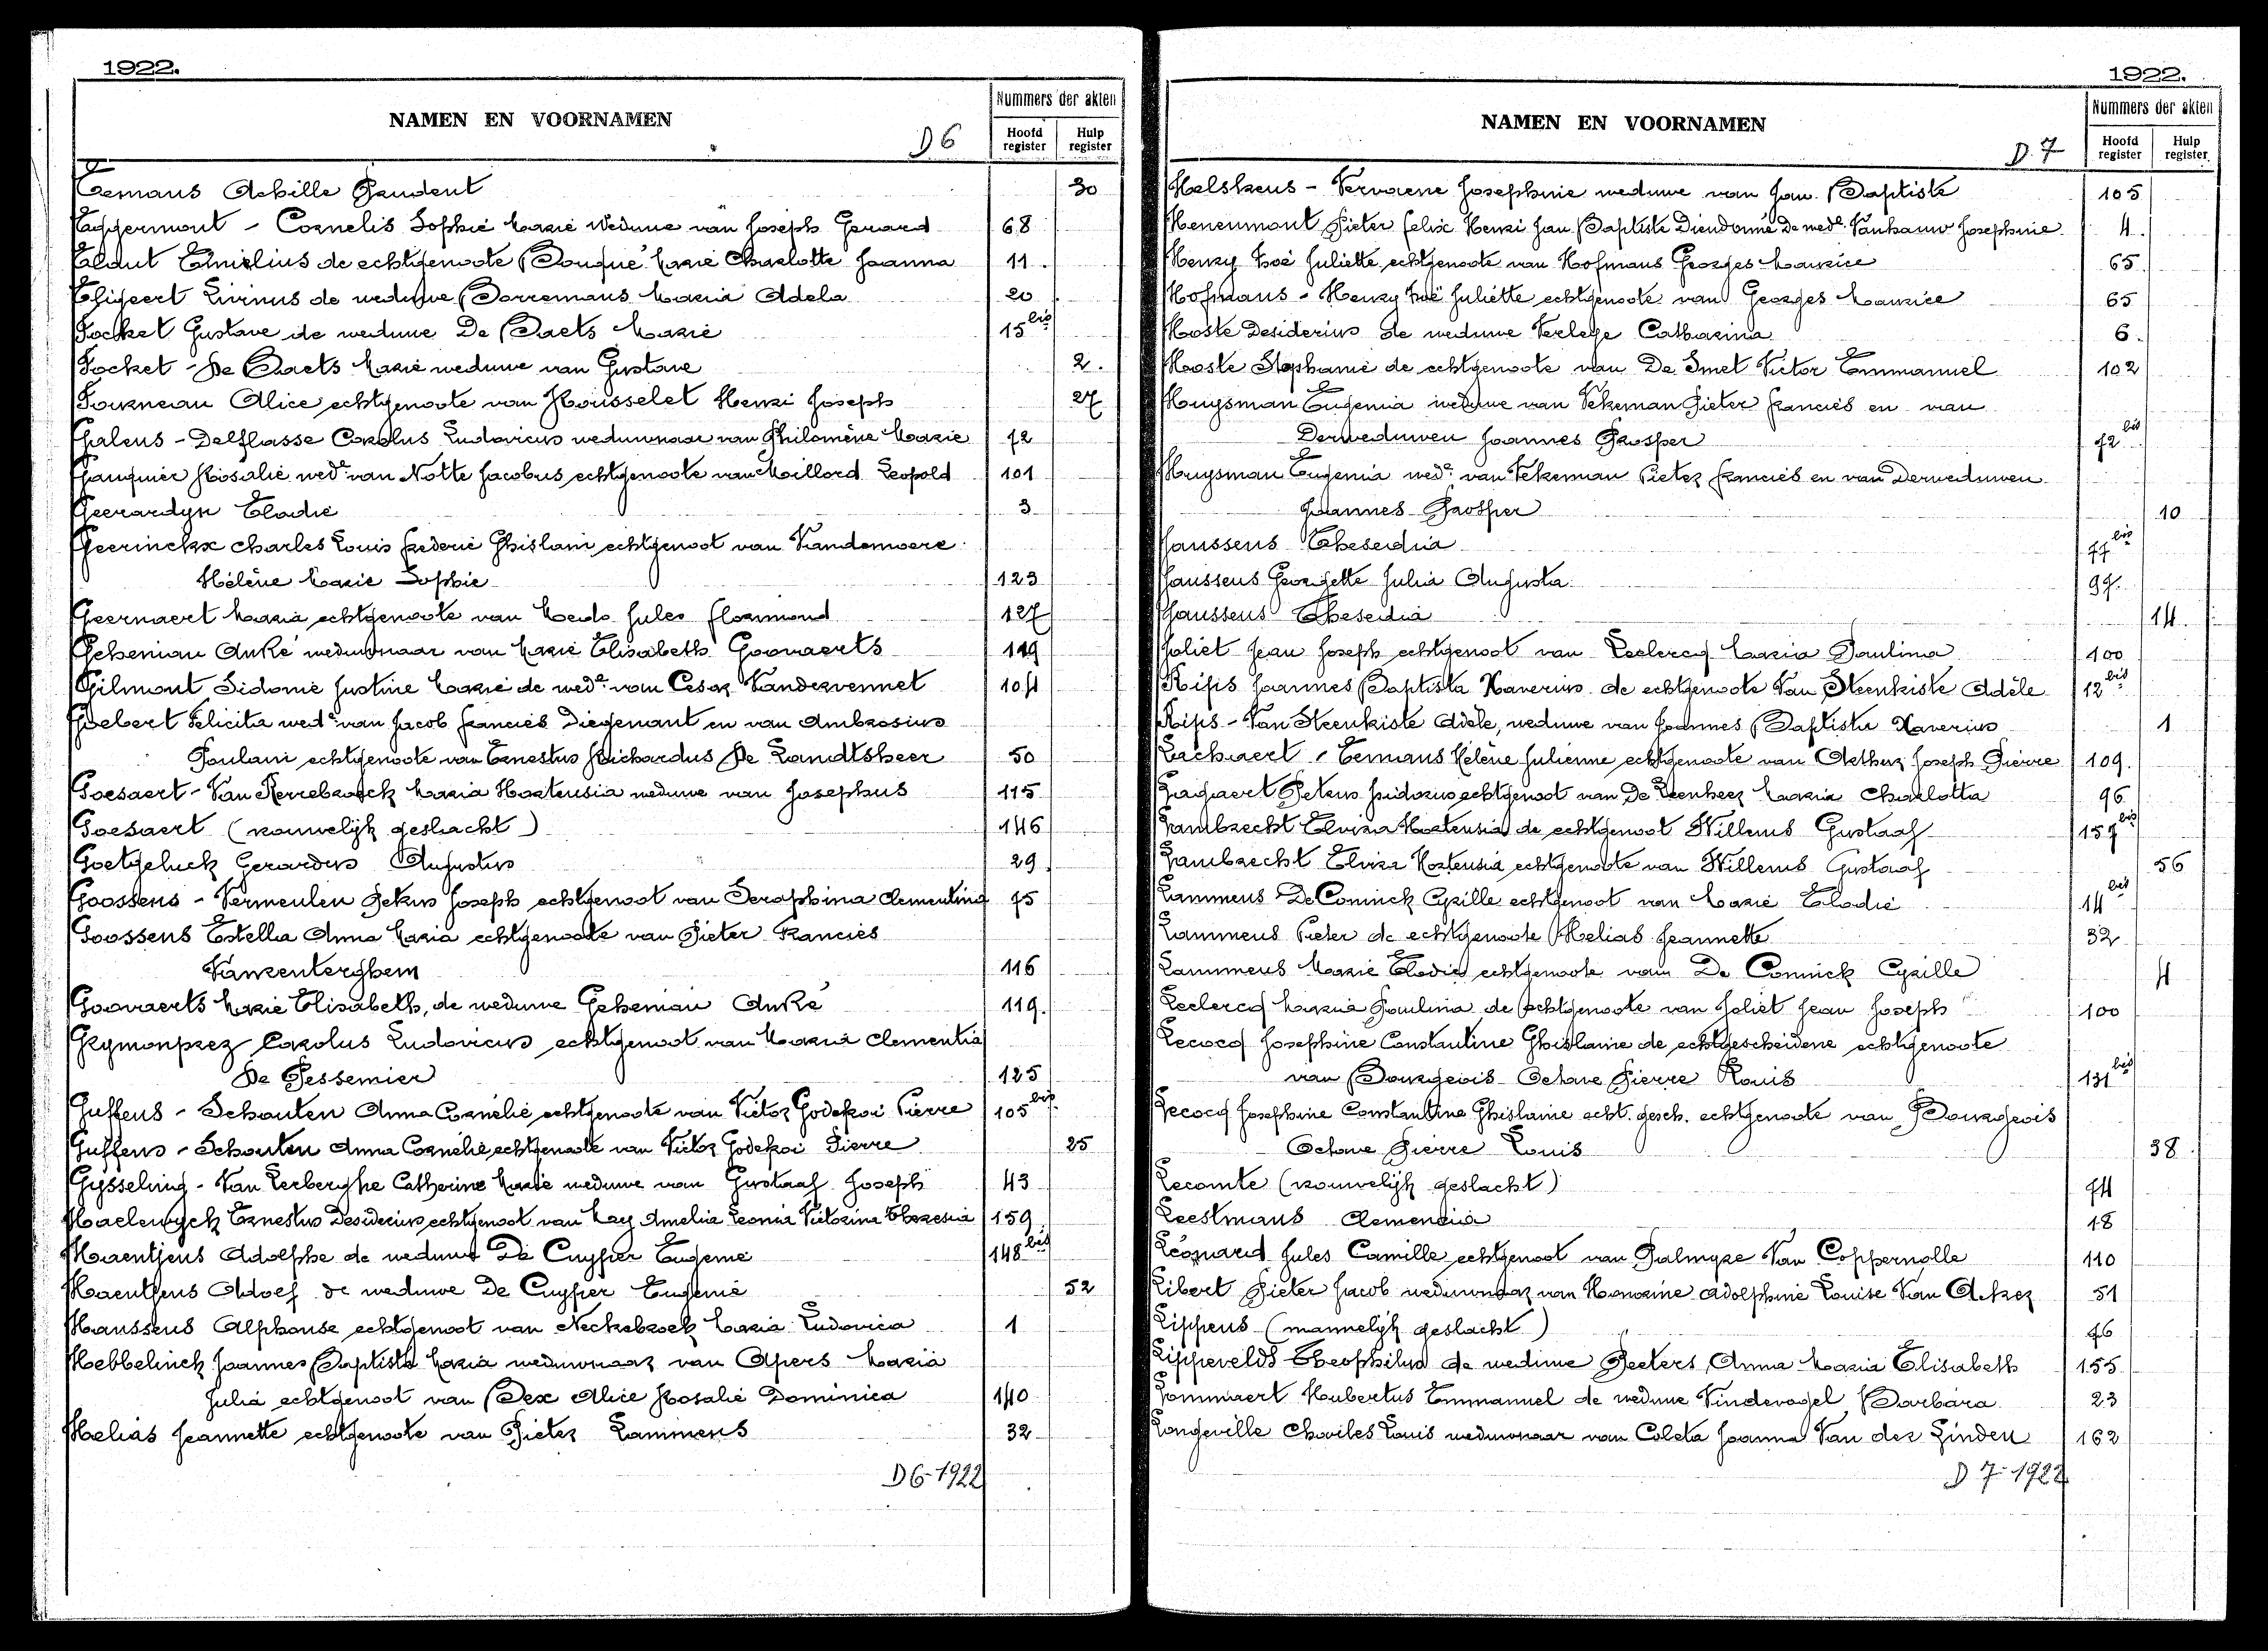 1922.
NAMEN EN VOORNAMEN
D 6
Nummers der akten
Hoofd register
Hulp register
Eemans Achille Gaudent 30
Eppermont - Cornelis Sophie Marie Weduwe van Joseph Gerard 68
Evrilius de echtgenoote Bouqué Marie Charlotte Joanna 11.
Livinus de weduwe Borremans Maria Adela 20
Focket Gustave de weduwe De Baets Marie 15 bis
Focket - De Baets Marie weduwe van Gustave 2.
Fourneau Alice echtgenoote van Housselet Henri Joseph 27
Galens - Delflasse Carolus Ludovicus weduwnaar van Philomène Marie 72
Gauquier Rosalie wed.e van Notte Jacobus echtgenoote van Maillard Leopold 101
Geerardyn Elodie 3
Geerinckx Charles Louis Frederic Ghislain echtgenoot van Vandamoere
Hélène Marie Sophie 123
Geernaert Maria echtgenoote van Jules Florimond 127
Gehenian André weduwnaar van Marie Elisabeth Goovaerts 119
Gilmont Sidonie Justine Marie de wed.e van Cesar Vandervennet 104
Goebert Felicita wed.e van Jacob Francies Diegenant en van Ambrosius
Poulain echtgenoote van Ernestus Richardus De Landtsheer 50
Goesaert - Van Kerrebroeck Maria Hortensia weduwe van Josephus 115
Goesaert (vrouwelijk geslacht) 146
Goetgeluck Gerardus Augustus 29
Goossens - Vermeulen Petrus Joseph echtgenoot van Seraphina Clementina 75
Goossens Estella Anna Maria echtgenoote van Pieter Francies
Vanrenterghem 116
Goovaerts Marie Elisabeth, de weduwe Gehenian André 119.
Grymonprez Carolus Ludovicus echtgenoot van Maria Clementia
De Pessemier 125
Guffens - Schouten Anna Cornélie echtgenoote van Victor Godefroi Pierre 105 bis
Guffens - Schouten Anna Cornélie echtgenoote van Victor Godefroi Pierre 25
Gysseling - Van Lerberghe Catherine Marie weduwe van Gustaaf Joseph 43
Haelewyck Ernestus Desiderius echtgenoot van Mary Amelia Leonia Victorina Theresia 159
Haentjens Adolphe de weduwe De Cuyper Eugenie 148 bis
Haentjens Adolf de weduwe De Cuyper Eugenie 52
Hanssens Alphonse echtgenoot van Neckebroek Maria Ludovica 1
Hebbelinck Joannes Baptista Maria weduwnaar van Apers Maria
Julia echtgenoot van Dex Alice Rosalie Dominica 140
Helias Jeannette echtgenoote van Pieter Lammens 32
D 6-1922
1922.
NAMEN EN VOORNAMEN
D. 7
Nummers der akten
Hoofd register
Hulp register
Helskens - Vervaene Josephine weduwe van Jan Baptiste 105
Henenmont Pieter Felix Henri Jan Baptiste Dieudonné De wed.e Vanhauw Josephine 4.
Henry Zoé Juliette echtgenoote van Hofmans Georges Maurice 65.
Hofmans - Henry Zoë Juliette echtgenoote van Georges Maurice 65
Hoste Desiderius de weduwe Verlege Catharina 6.
Hooste Stephanie de echtgenoote van De Smet Victor Emmanuel 102
Huysman Eugenia weduwe van Vekeman Pieter Francies en van
Derweduwen Joannes Prosper 72 bis
Huysman Eugenia wed.e van Vekeman Pieter Francies en van Derweduwen
Joannes Prosper 10
Janssens Theseidia 77 bis
Janssens Georgette Julia Augusta 97.
Janssens Theseidia 14.
Joliet Jean Joseph echtgenoot van Leclercq Maria Paulina 100
Kips Joannes Baptista Xaverius de echtgenoote Van Steenkiste Adèle 12 bis
Kips - Van Steenkiste Adele, weduwe van Joannes Baptista Xaverius 1
Lachaert - Eemans Hélène Julienne echtgenoote van Arthur Joseph Pierre 109.
Lagaert Petrus Isidorus echtgenoot van De Leenheer Maria Charlotta 96
Lambrecht Elvira Hortensia de echtgenoot Willems Gustaaf 157 bis
Lambrecht Elvira Hortensia echtgenoote van Willems Gustaaf 56
Lammens De Coninck Cyrille echtgenoot van Marie Elodie 14 bis
Lammens Pieter de echtgenoote Helias Jeannette 32
Lammens Marie Elodie echtgenoote van De Coninck Cyrille 4
Leclercq Maria Paulina de echtgenoote van Joliet Jean Joseph 100
Lecocq Josephine Constantine Ghislaine de echtgescheidene echtgenoote
van Bourgeois Octave Pierre Louis 131 bis
Lecocq Josephine Constantine Ghislaine echt. gesch. echtgenoote van Bourgeois
Octave Pierre Louis 38.
Lecomte (vrouwelijk geslacht) 74
Leestmans Clemencia 18
Léonard Jules Camille echtgenoot van Palmyre Van Coppernolle 110
Libert Pieter Jacob weduwnaar van Honorine Adolphine Louise Van Acker 51
Lippens (mannelijk geslacht) 76
Lippevelds Theophilus de weduwe Peeters Anna Maria Elisabeth 155
Lommaert Hubertus Emmanuel de weduwe Vindevogel Barbara 23
Longeville Charles Louis weduwnaar van Coleta Joanna Van der Linden 162
D 7-1922